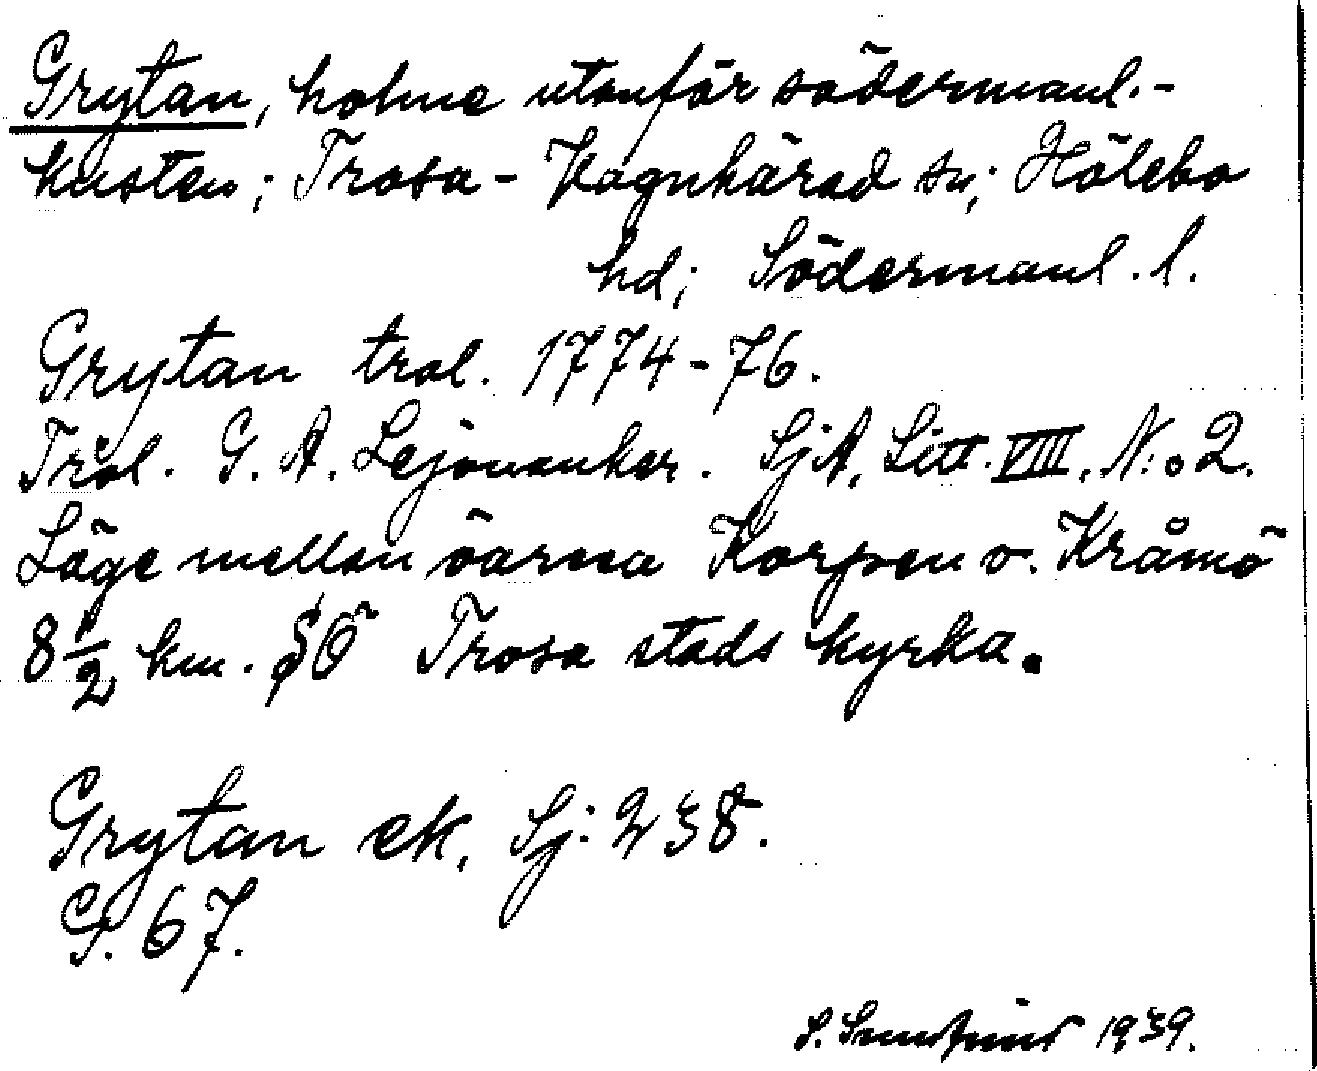 Grytan, holme utanför södermanl.-
kusten; Trosa - Vagnhärad sn; Hölebo
hd; Södermanl. l.
Grytan trol. 1774-76.
Trol. G. A. Lejonanker. SjA, Litt. VIII. N:o 2.
Läge mellan öarna Korpen o. Kråmö
8 1/2 km. SÖ Trosa stads kyrka.
Grytan ek. Sj: 238.
S. 67.
S. 1939.